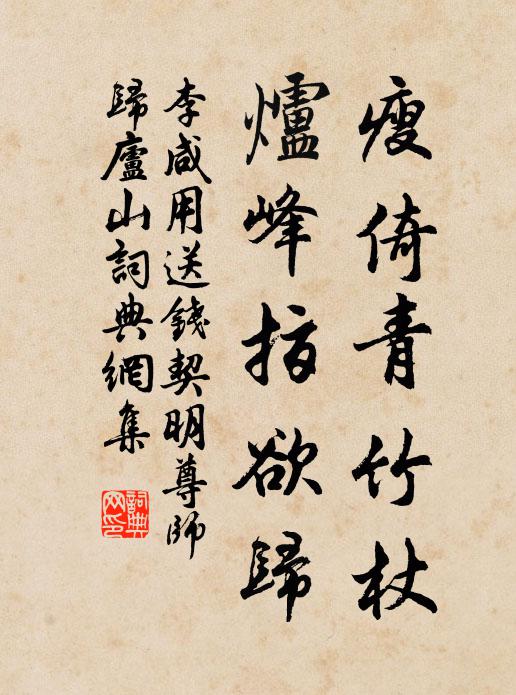 瘦倚青竹杖
爐峰指欲歸
李咸用送錢契明尊師
歸廬山詞典網集
詞典
网印